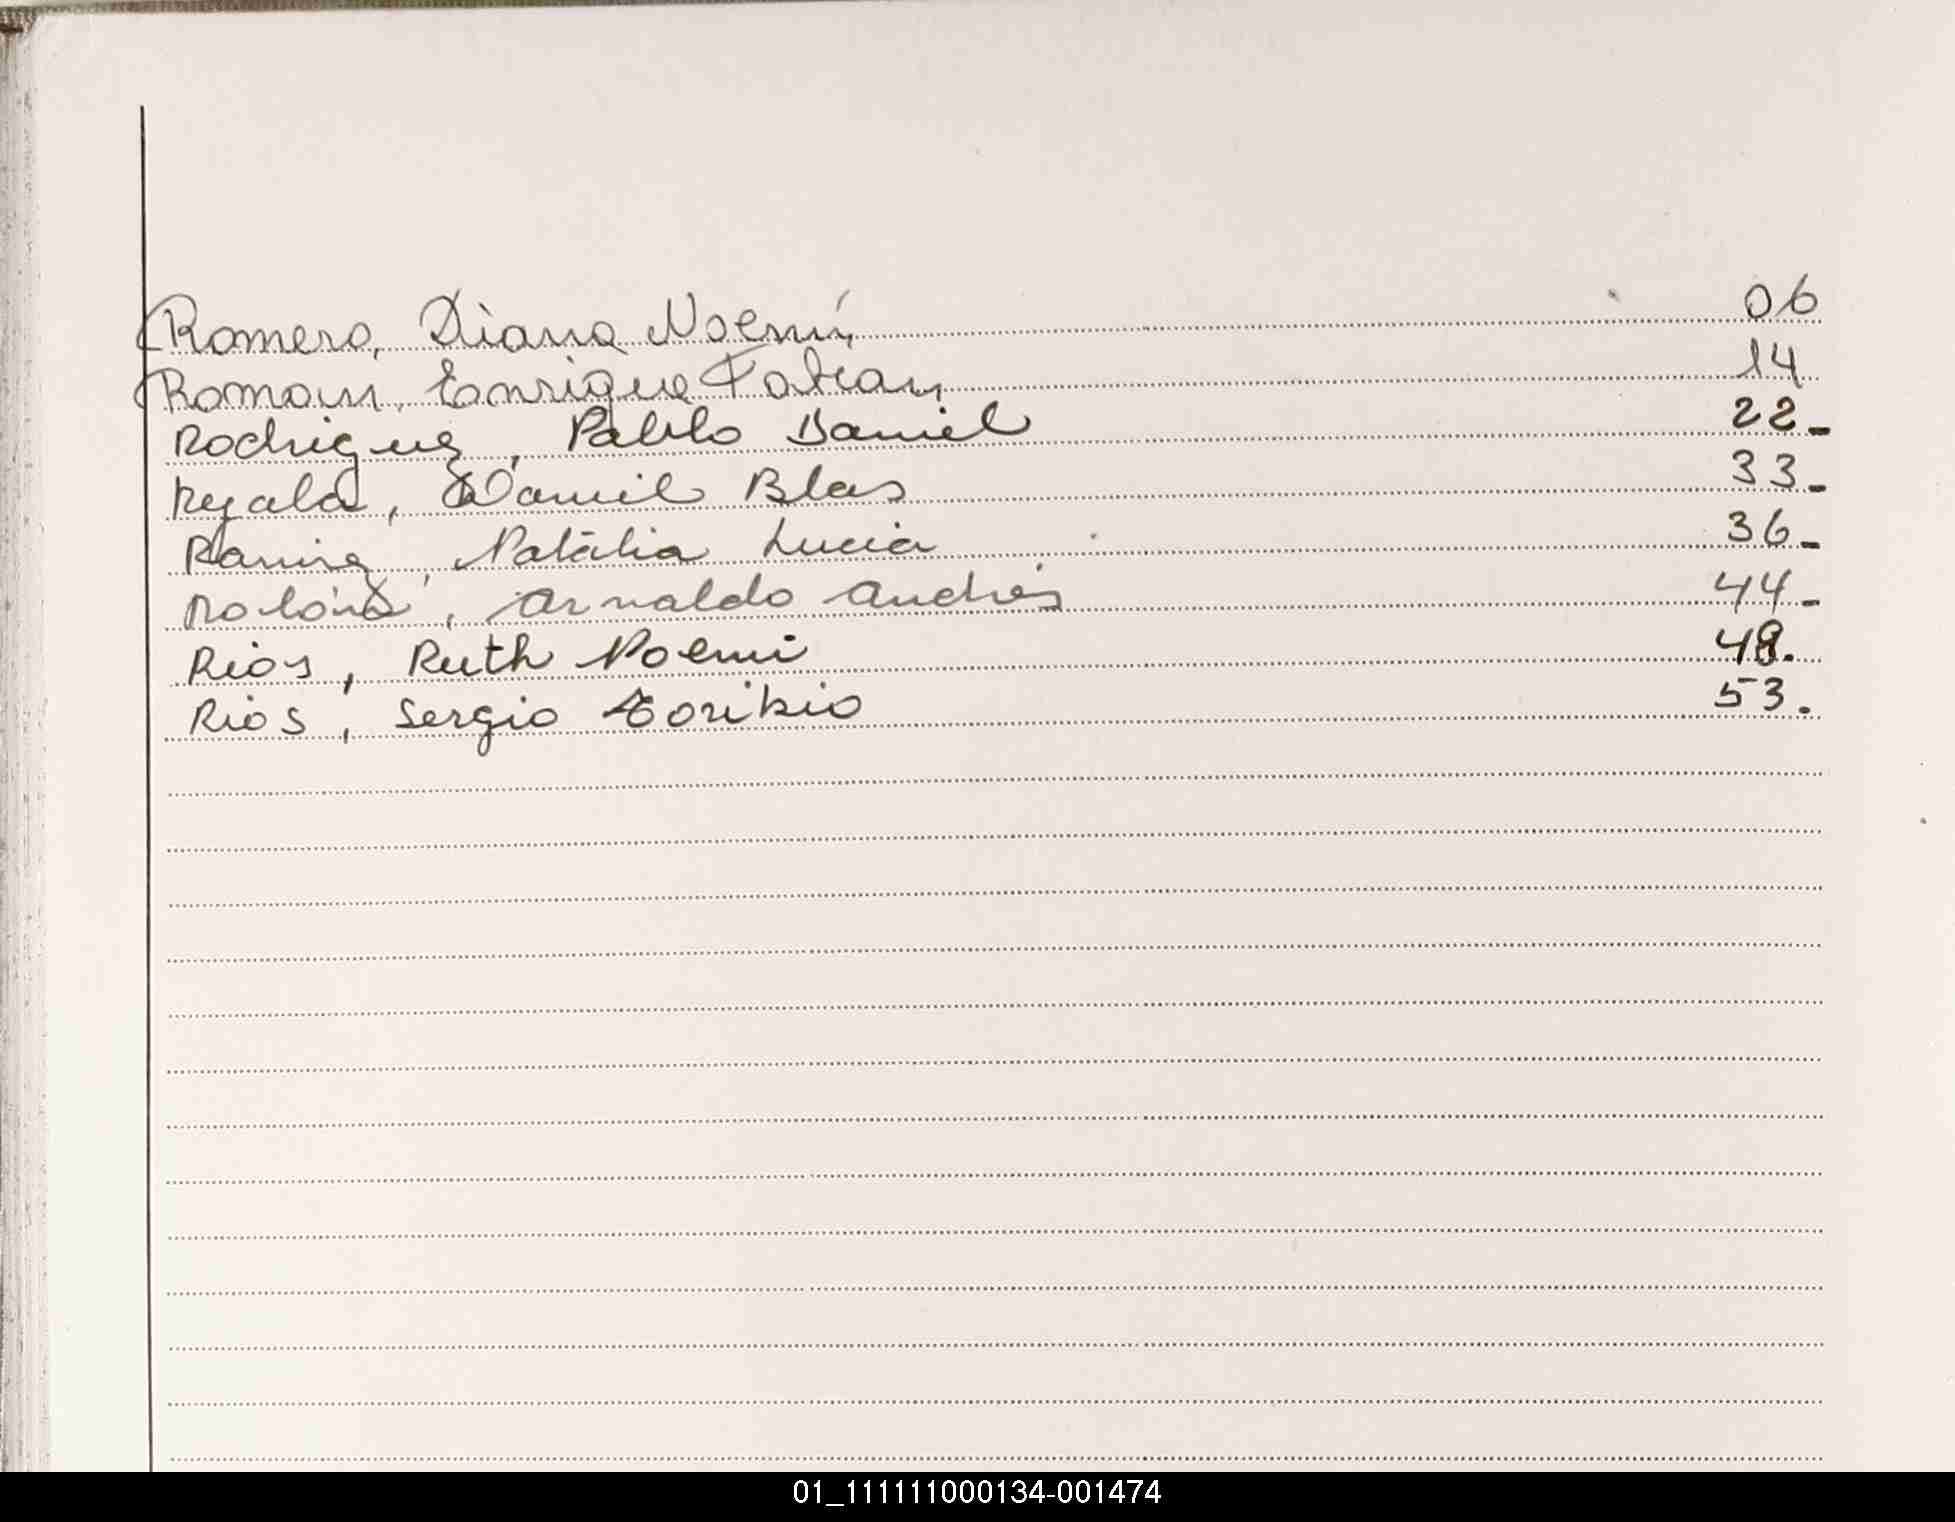 Romero, Diana Noemí, 06
Roman, Enrique Fabian, 14
Rodriguez, Pablo Daniel 22-
Daniel Blas 33-
Ramirez, Natalia Lucia 36-
Arnaldo Andrés 44-
Rios, Ruth Noemi 48.
Rios, Sergio Toribio 53.
01_111111000134-001474